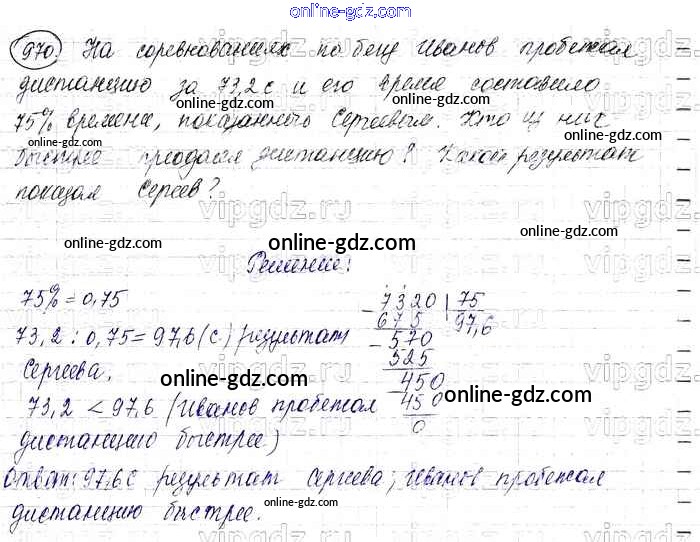 online-gdz.com
970. На соревнованиях по бегу Иванов пробежал
дистанцию за 73,2 с и его время составило
online-gdz.com online-gdz.com
75% времени, показанного Сергеевым. Кто из них
online-gdz.com
быстрее преодолел дистанцию? Какой результат
показал Сергеев?
vipgdz.ru vipgdz
online-gdz.com online-gdz.com online-gdz.com
Решение:
vipgdz.ru vipgdz
75% = 0,75
73,2 : 0,75 = 97,6 (с) результат
Сергеева.
73,2 < 97,6 (Иванов пробежал
дистанцию быстрее)
7320 | 75
675 97,6
570
525
450
450
0
online-gdz.com online-gdz.com online-gdz.com
online-gdz.com online-gdz.com
Ответ: 97,6 с результат Сергеева; Иванов пробежал
online-gdz.com
дистанцию быстрее.
online-gdz.com